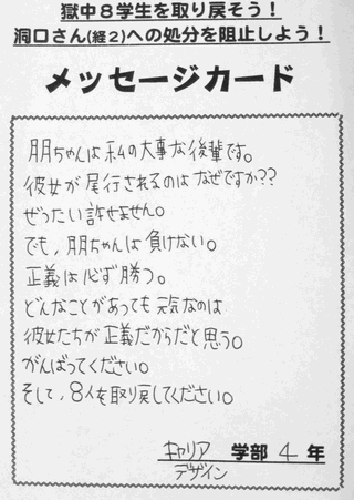 獄中8学生を取り戻そう！
洞口さん(経2)への処分を阻止しよう！
メッセージカード
朋ちゃんは私の大事な後輩です。
彼女が尾行されるのはなぜですか??
ぜったい許せません。
でも、朋ちゃんは負けない。
正義は必ず勝つ。
どんなことがあっても元気なのは
彼女たちが正義だからだと思う。
がんばってください。
そして、8人を取り戻してください。
キャリア
デザイン 学部 4 年